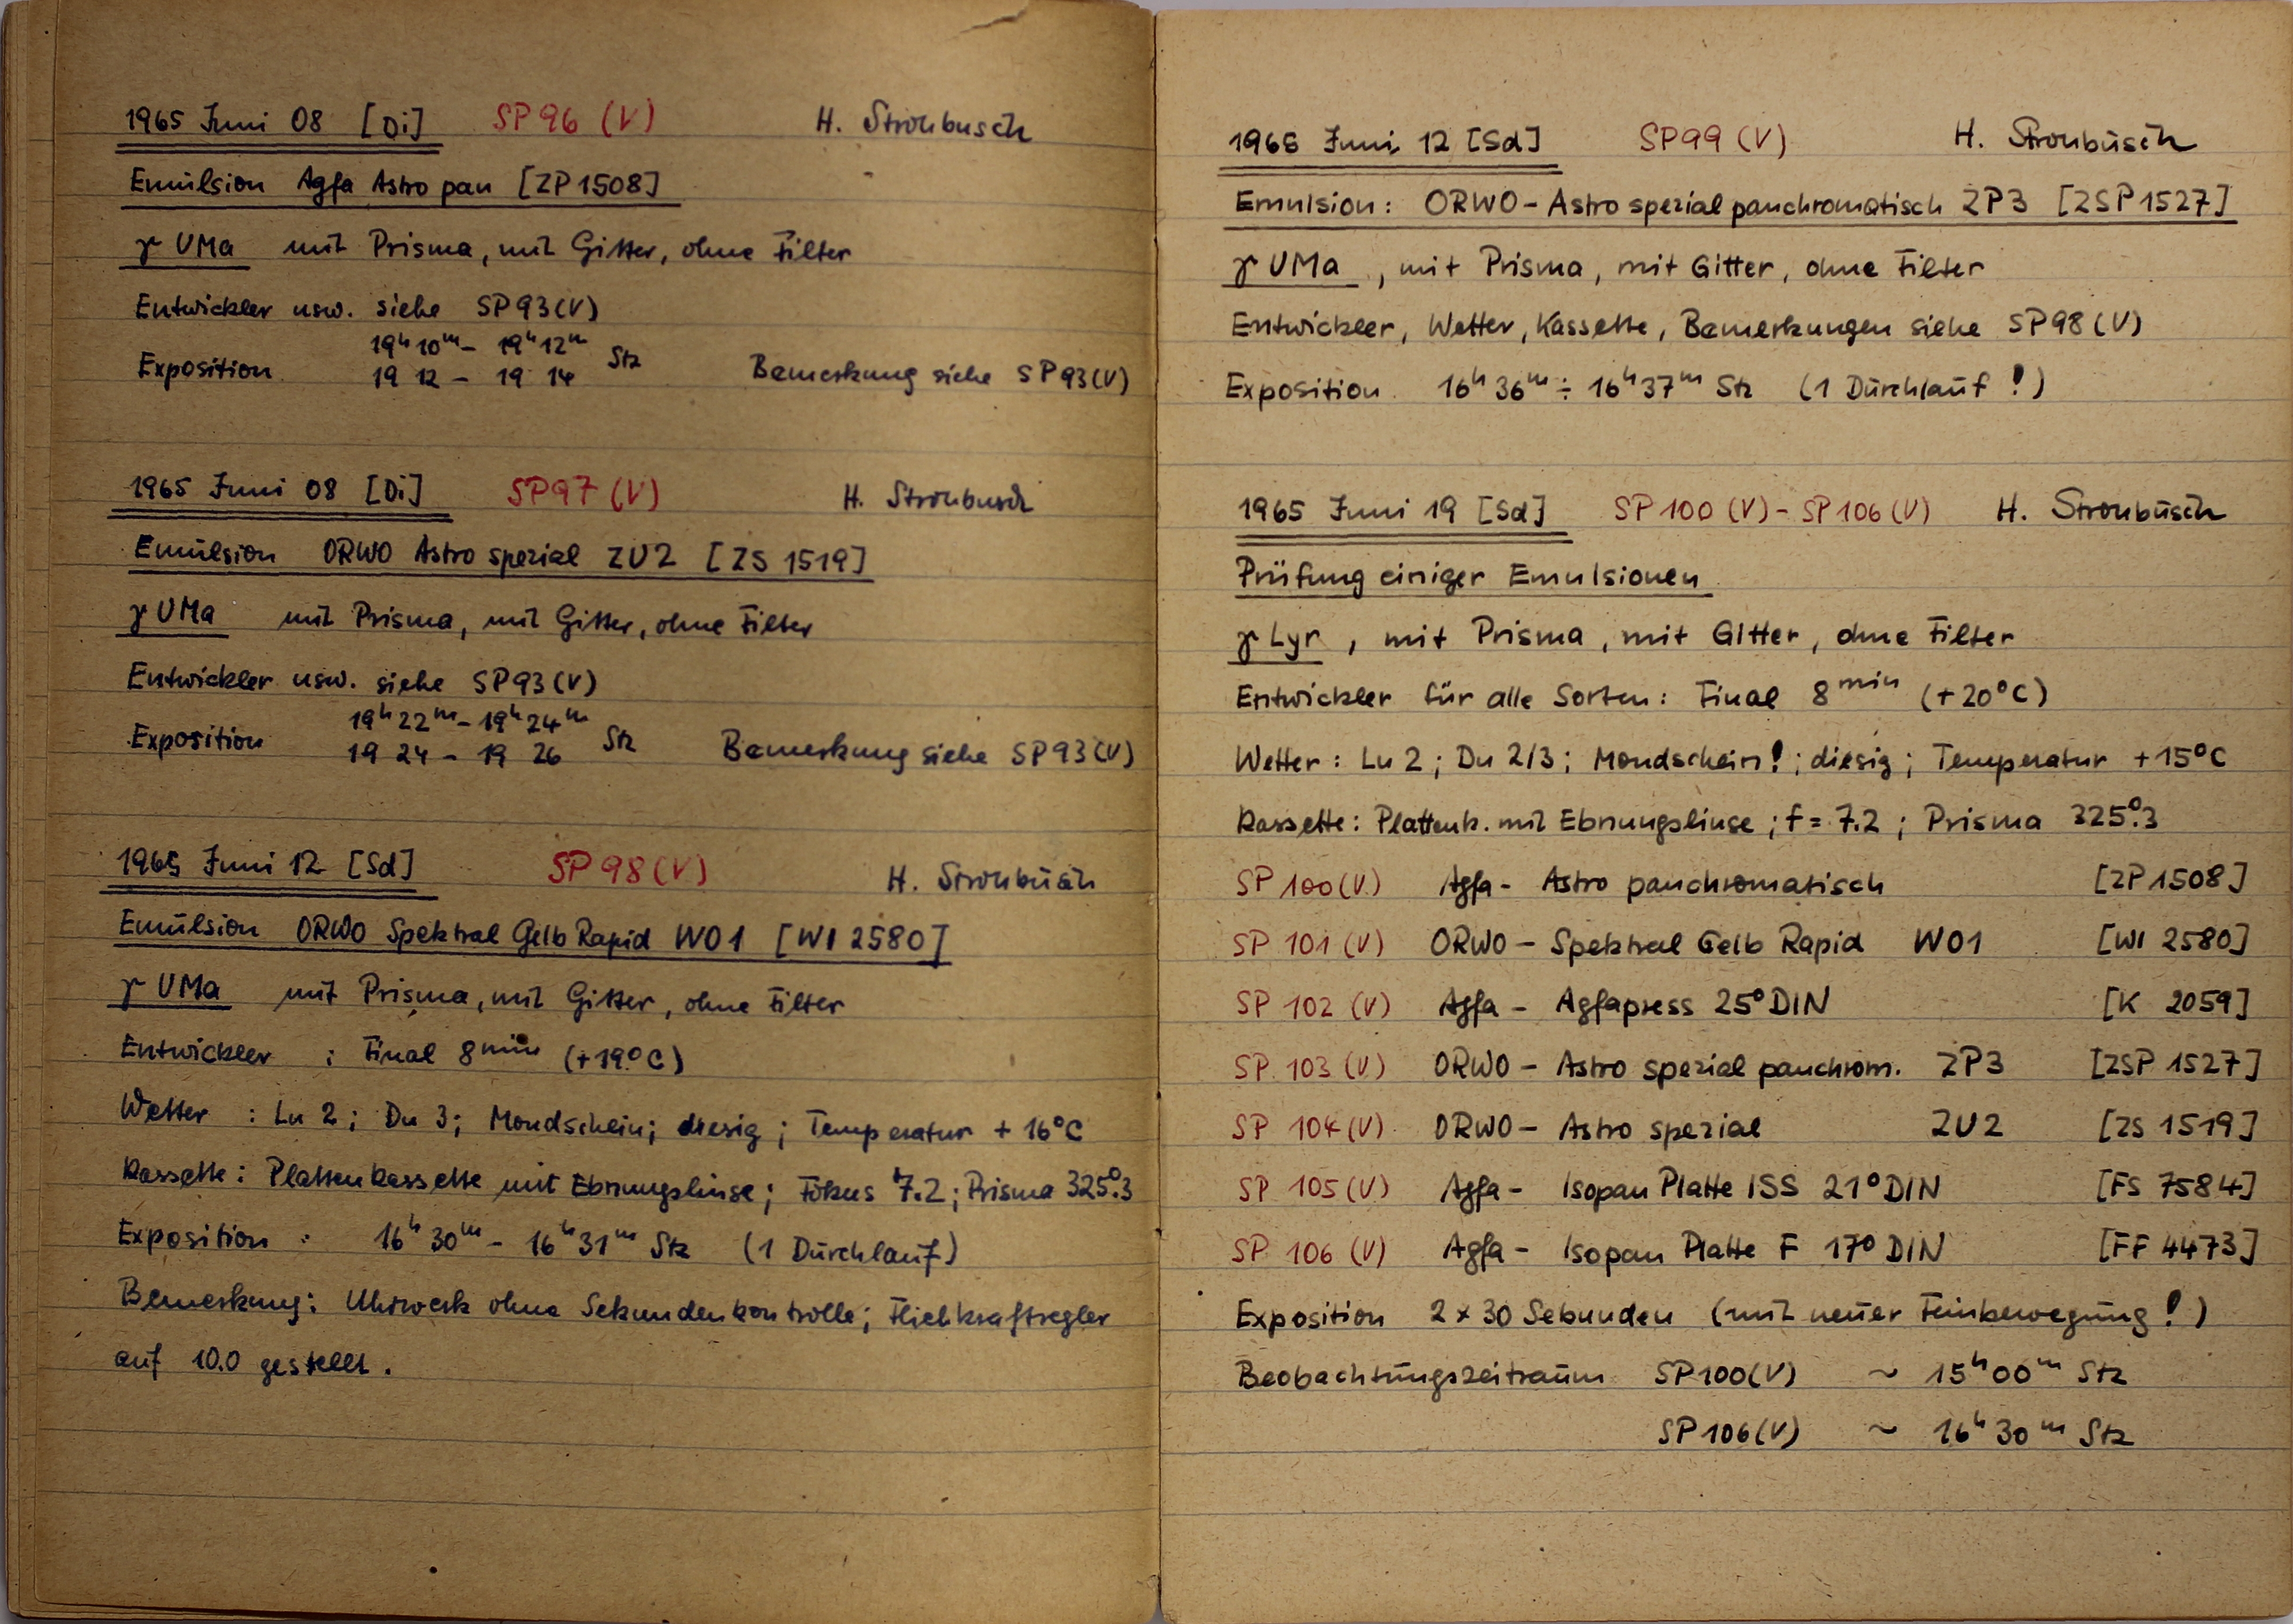 1965 Juni 08 [Di] SP 96 (V) H. Strohbusch
Emulsion Agfa Astro pan [ZP 1508]
γ UMa mit Prisma, mit Gitter, ohne Filter
Entwickler usw. siehe SP 93 (V)
19ʰ10ᵐ – 19ʰ12ᵐ
Exposition 19 12 – 19 14 Stz Bemerkung siehe SP 93 (V)
1965 Juni 08 [Di] SP 97 (V) H. Strohbusch
Emulsion ORWO Astro spezial ZU2 [ZS 1519]
γ UMa mit Prisma, mit Gitter, ohne Filter
Entwickler usw. siehe SP 93 (V)
19ʰ22ᵐ – 19ʰ24ᵐ
Exposition 19 24 – 19 26 Stz Bemerkung siehe SP 93 (V)
1965 Juni 12 [Sd] SP 98 (V) H. Strohbusch
Emulsion ORWO Spektral Gelb Rapid WO1 [WI 2580]
γ UMa mit Prisma, mit Gitter, ohne Filter
Entwickler : Final 8ᵐⁱⁿ (+19°C)
Wetter : Lu 2; Du 3; Mondschein; diesig; Temperatur + 16°C
Kassette: Plattenkassette mit Ebnungslinse; Fokus 7.2; Prisma 325°.3
Exposition : 16ʰ30ᵐ – 16ʰ31ᵐ Stz (1 Durchlauf)
Bemerkung: Uhrwerk ohne Sekundenkontrolle; Fliehkraftregler
auf 10.0 gestellt.
1965 Juni 12 [Sd] SP 99 (V) H. Strohbusch
Emulsion: ORWO – Astro spezial panchromatisch ZP3 [ZSP 1527]
γ UMa, mit Prisma, mit Gitter, ohne Filter
Entwickler, Wetter, Kassette, Bemerkungen siehe SP 98 (V)
Exposition 16ʰ36ᵐ ÷ 16ʰ37ᵐ Stz (1 Durchlauf!)
1965 Juni 19 [Sd] SP 100 (V) – SP 106 (V) H. Strohbusch
Prüfung einiger Emulsionen
γ Lyr, mit Prisma, mit Gitter, ohne Filter
Entwickler für alle Sorten: Final 8ᵐⁱⁿ (+20°C)
Wetter: Lu 2; Du 2/3; Mondschein!; diesig; Temperatur +15°C
Kassette: Plattenk. mit Ebnungslinse; f = 7.2; Prisma 325°.3
SP 100 (V) Agfa – Astro panchromatisch [ZP 1508]
SP 101 (V) ORWO – Spektral Gelb Rapid WO1 [WI 2580]
SP 102 (V) Agfa – Agfapress 25° DIN [K 2059]
SP 103 (V) ORWO – Astro spezial panchrom. ZP3 [ZSP 1527]
SP 104 (V) ORWO – Astro spezial ZU2 [ZS 1519]
SP 105 (V) Agfa – Isopan Platte ISS 21° DIN [FS 7584]
SP 106 (V) Agfa – Isopan Platte F 17° DIN [FF 4473]
Exposition 2 x 30 Sekunden (mit neuer Feinbewegung!)
Beobachtungszeitraum SP 100 (V) ~ 15ʰ00ᵐ Stz
SP 106 (V) ~ 16ʰ30ᵐ Stz